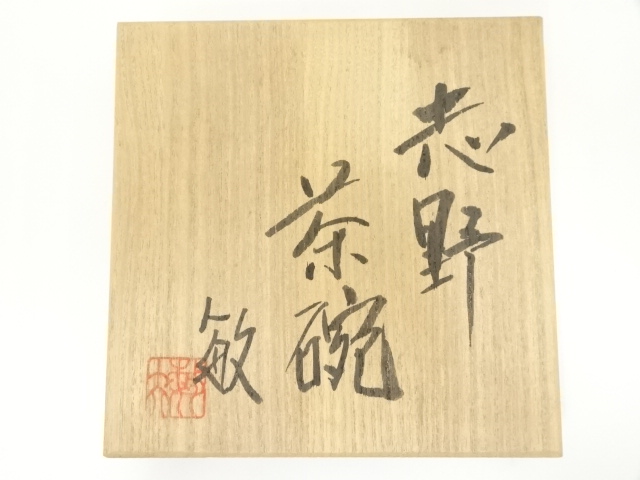 志野
茶碗
敏